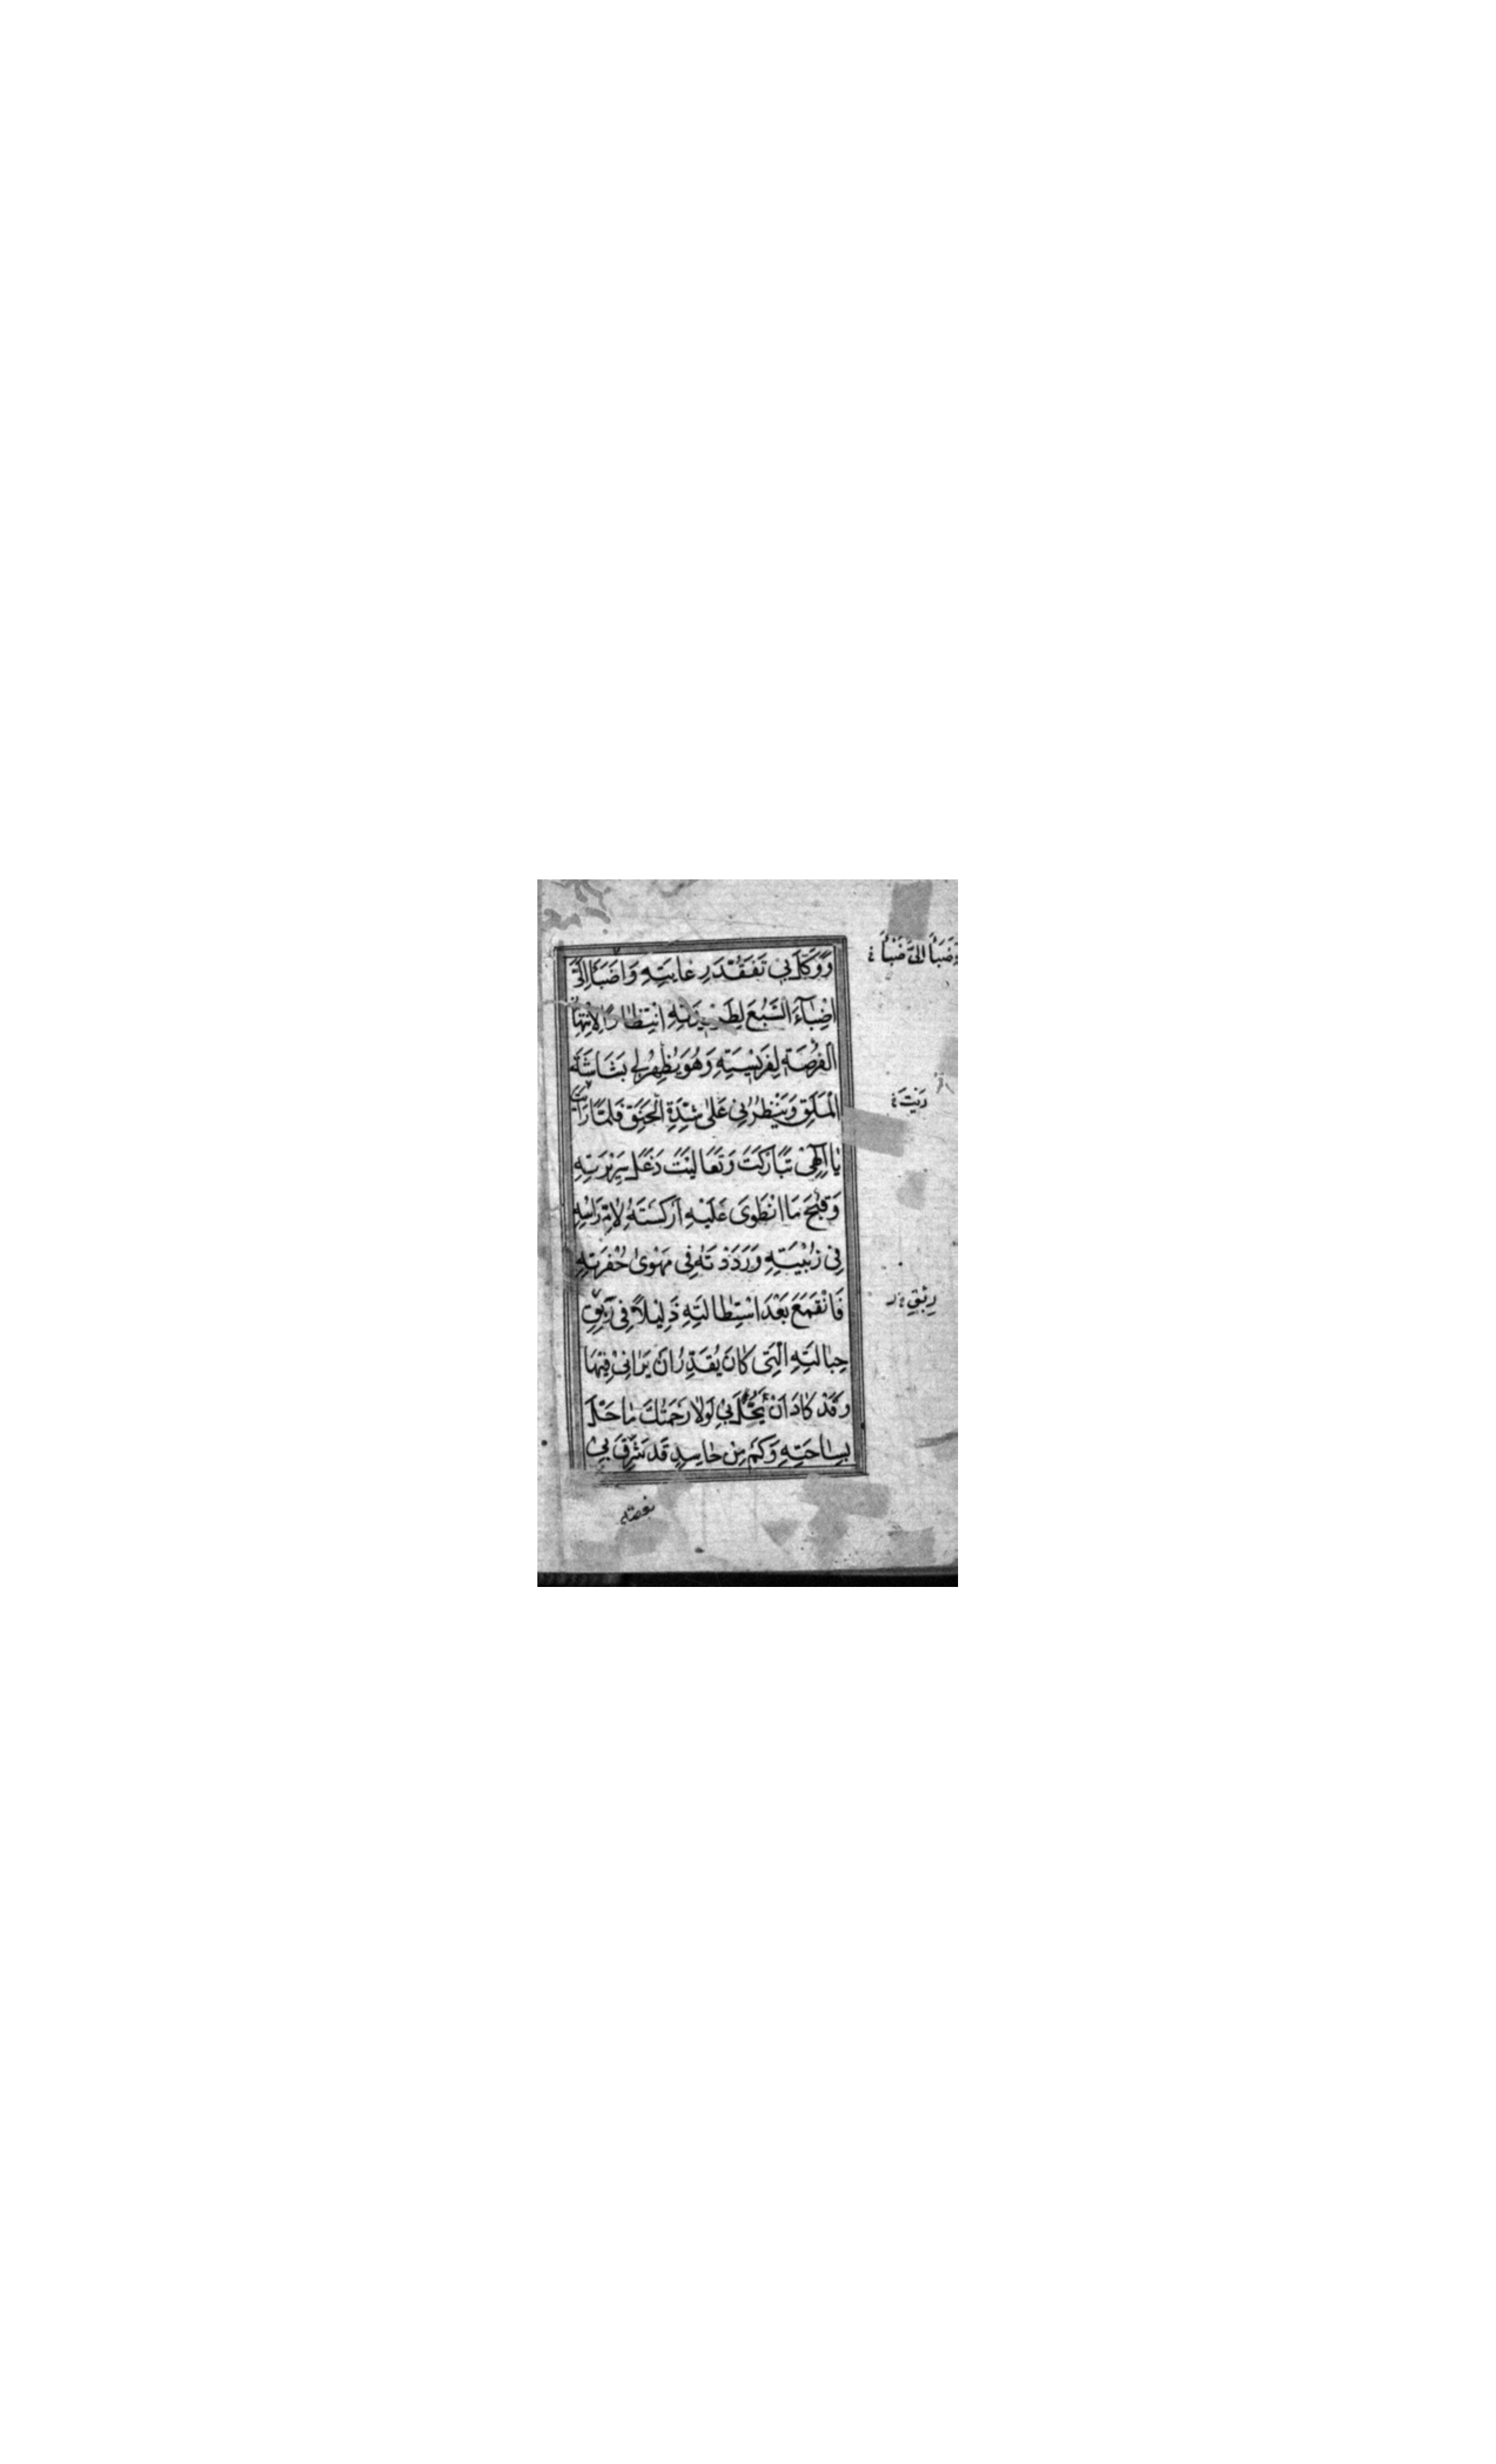 وَوَكَّلَ بِي تَفَقُّدَ رِعَايَتِهِ وَاَضْبَأَ اِلَيَّ
اِضْبَآءَ السَّبُعِ لِطَرِيدَتِهِ اِنْتِظَارًا لِانْتِهَازِ
الْفُرْصَةِ لِفَرِيسَتِهِ وَهُوَ يُظْهِرُ لِي بَشَاشَةَ
الْمَلَقِ وَيَنْظُرُنِي عَلَى شِدَّةِ الْحَنَقِ فَلَمَّا رَاَيْتَ
يَا اِلٰهِي تَبَارَكْتَ وَتَعَالَيْتَ دَغَلَ سَرِيرَتِهِ
وَقُبْحَ مَا انْطَوَى عَلَيْهِ اَرْكَسْتَهُ لِاُمِّ رَاْسِهِ
فِي زُبْيَتِهِ وَرَدَدْتَهُ فِي مَهْوَى حُفْرَتِهِ
فَانْقَمَعَ بَعْدَ اسْتِطَالَتِهِ ذَلِيلًا فِي رِبَقِ
حِبَالَتِهِ الَّتِي كَانَ يُقَدِّرُ اَنْ يَرَانِي فِيهَا
وَقَدْ كَادَ اَنْ يَحُلَّ بِي لَوْلَا رَحْمَتُكَ مَا حَلَّ
بِسَاحَتِهِ وَكَمْ مِنْ حَاسِدٍ قَدْ شَرِقَ بِي
بغصته
وَضَبَأَ اِلَيَّ ضَبْأً
رِبْقِ